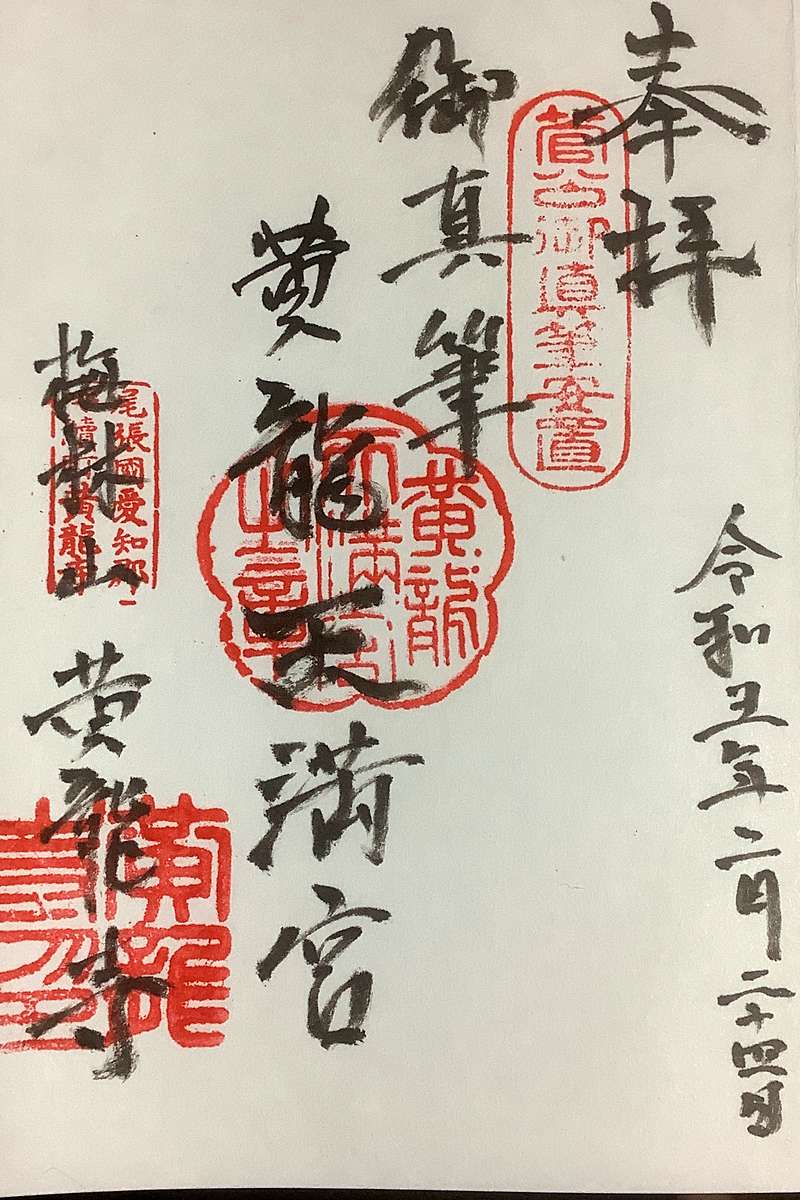 奉拝
令和五年二月二十四日
菅公御真筆安置
御真筆
黄龍天満宮
黄龍
天満宮
之章
梅林山 黄龍寺
尾張國愛知郡
黄龍寺
黄龍